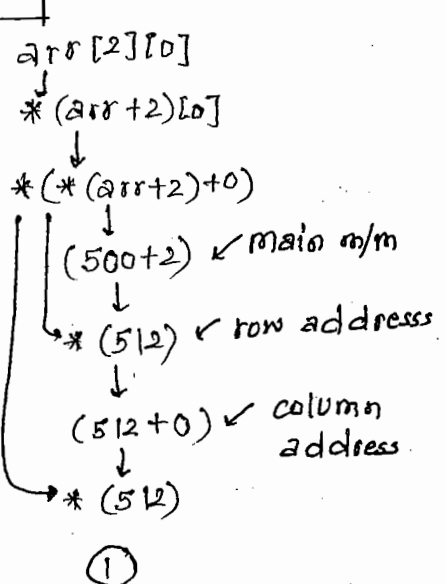 arr[2][0]
*(arr+2)[0]
*(*(arr+2)+0)
(500+2) main m/m
*(512) row addresss
(512+0) column
address
*(512)
1